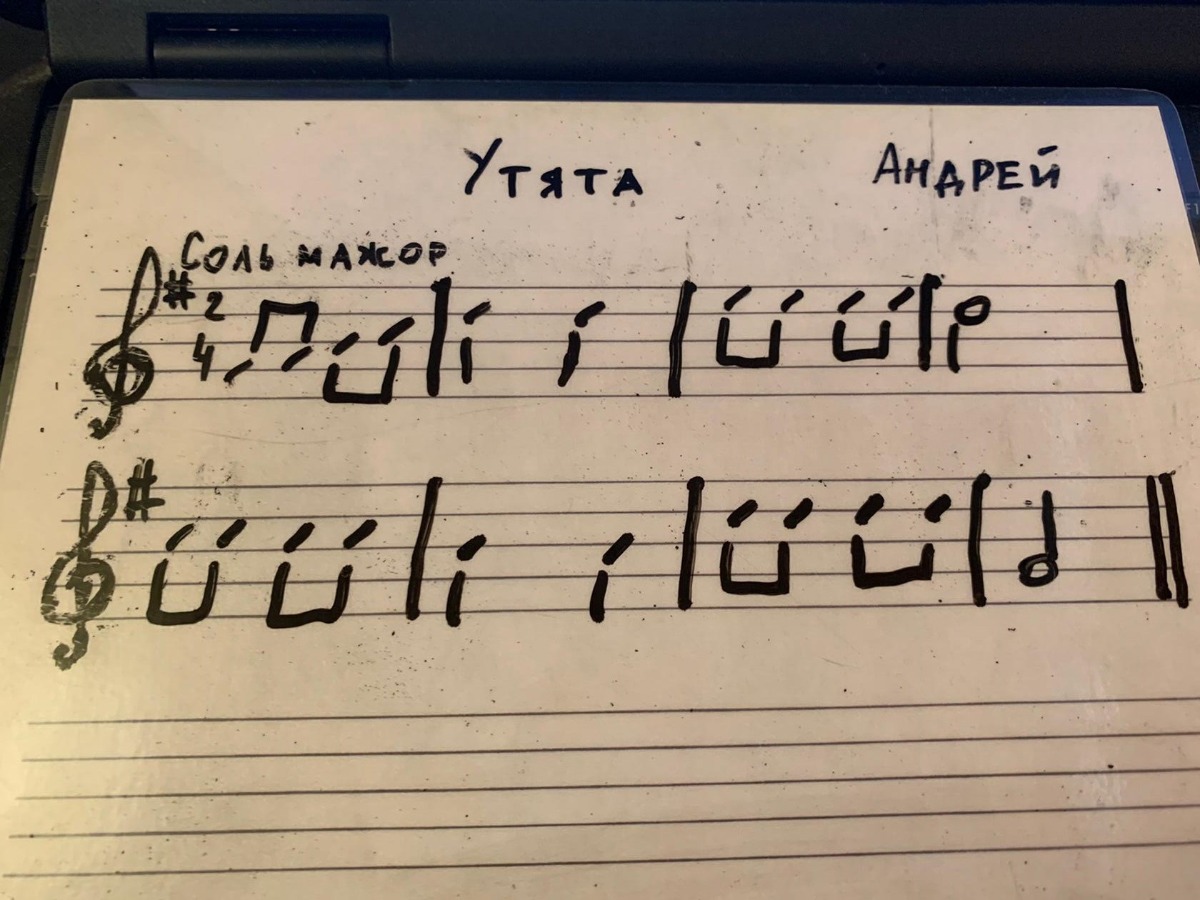 Утята Андрей
Соль мажор
2
4